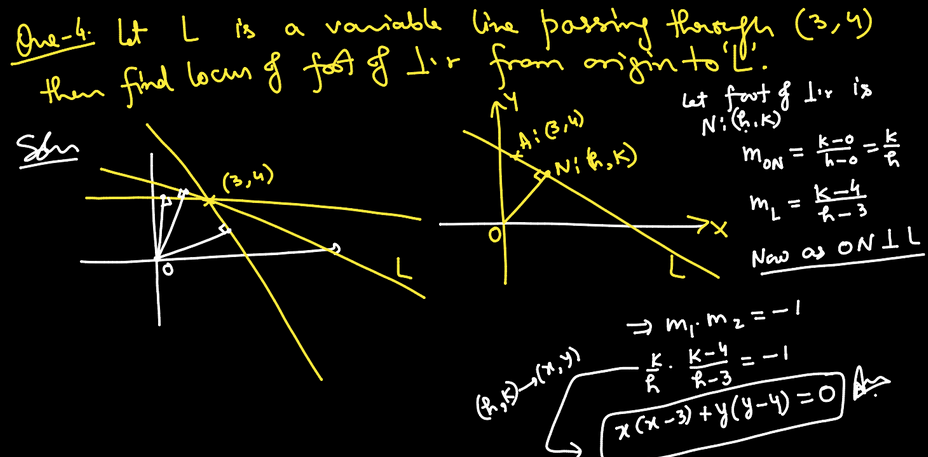 Que-4. Let L is a variable line passing through (3,4)
then find locus of foot of ⊥r from origin to 'L'.
Soln
(3,4)
O
L
Y
A:(3,4)
N:(h,k)
O
X
L
Let foot of ⊥r is
N:(h,k)
m_ON = (k-0)/(h-0) = k/h
m_L = (k-4)/(h-3)
Now as ON ⊥ L
⇒ m₁·m₂ = -1
k/h · (k-4)/(h-3) = -1
(h,k)→(x,y)
x(x-3)+y(y-4)=0 Ans.